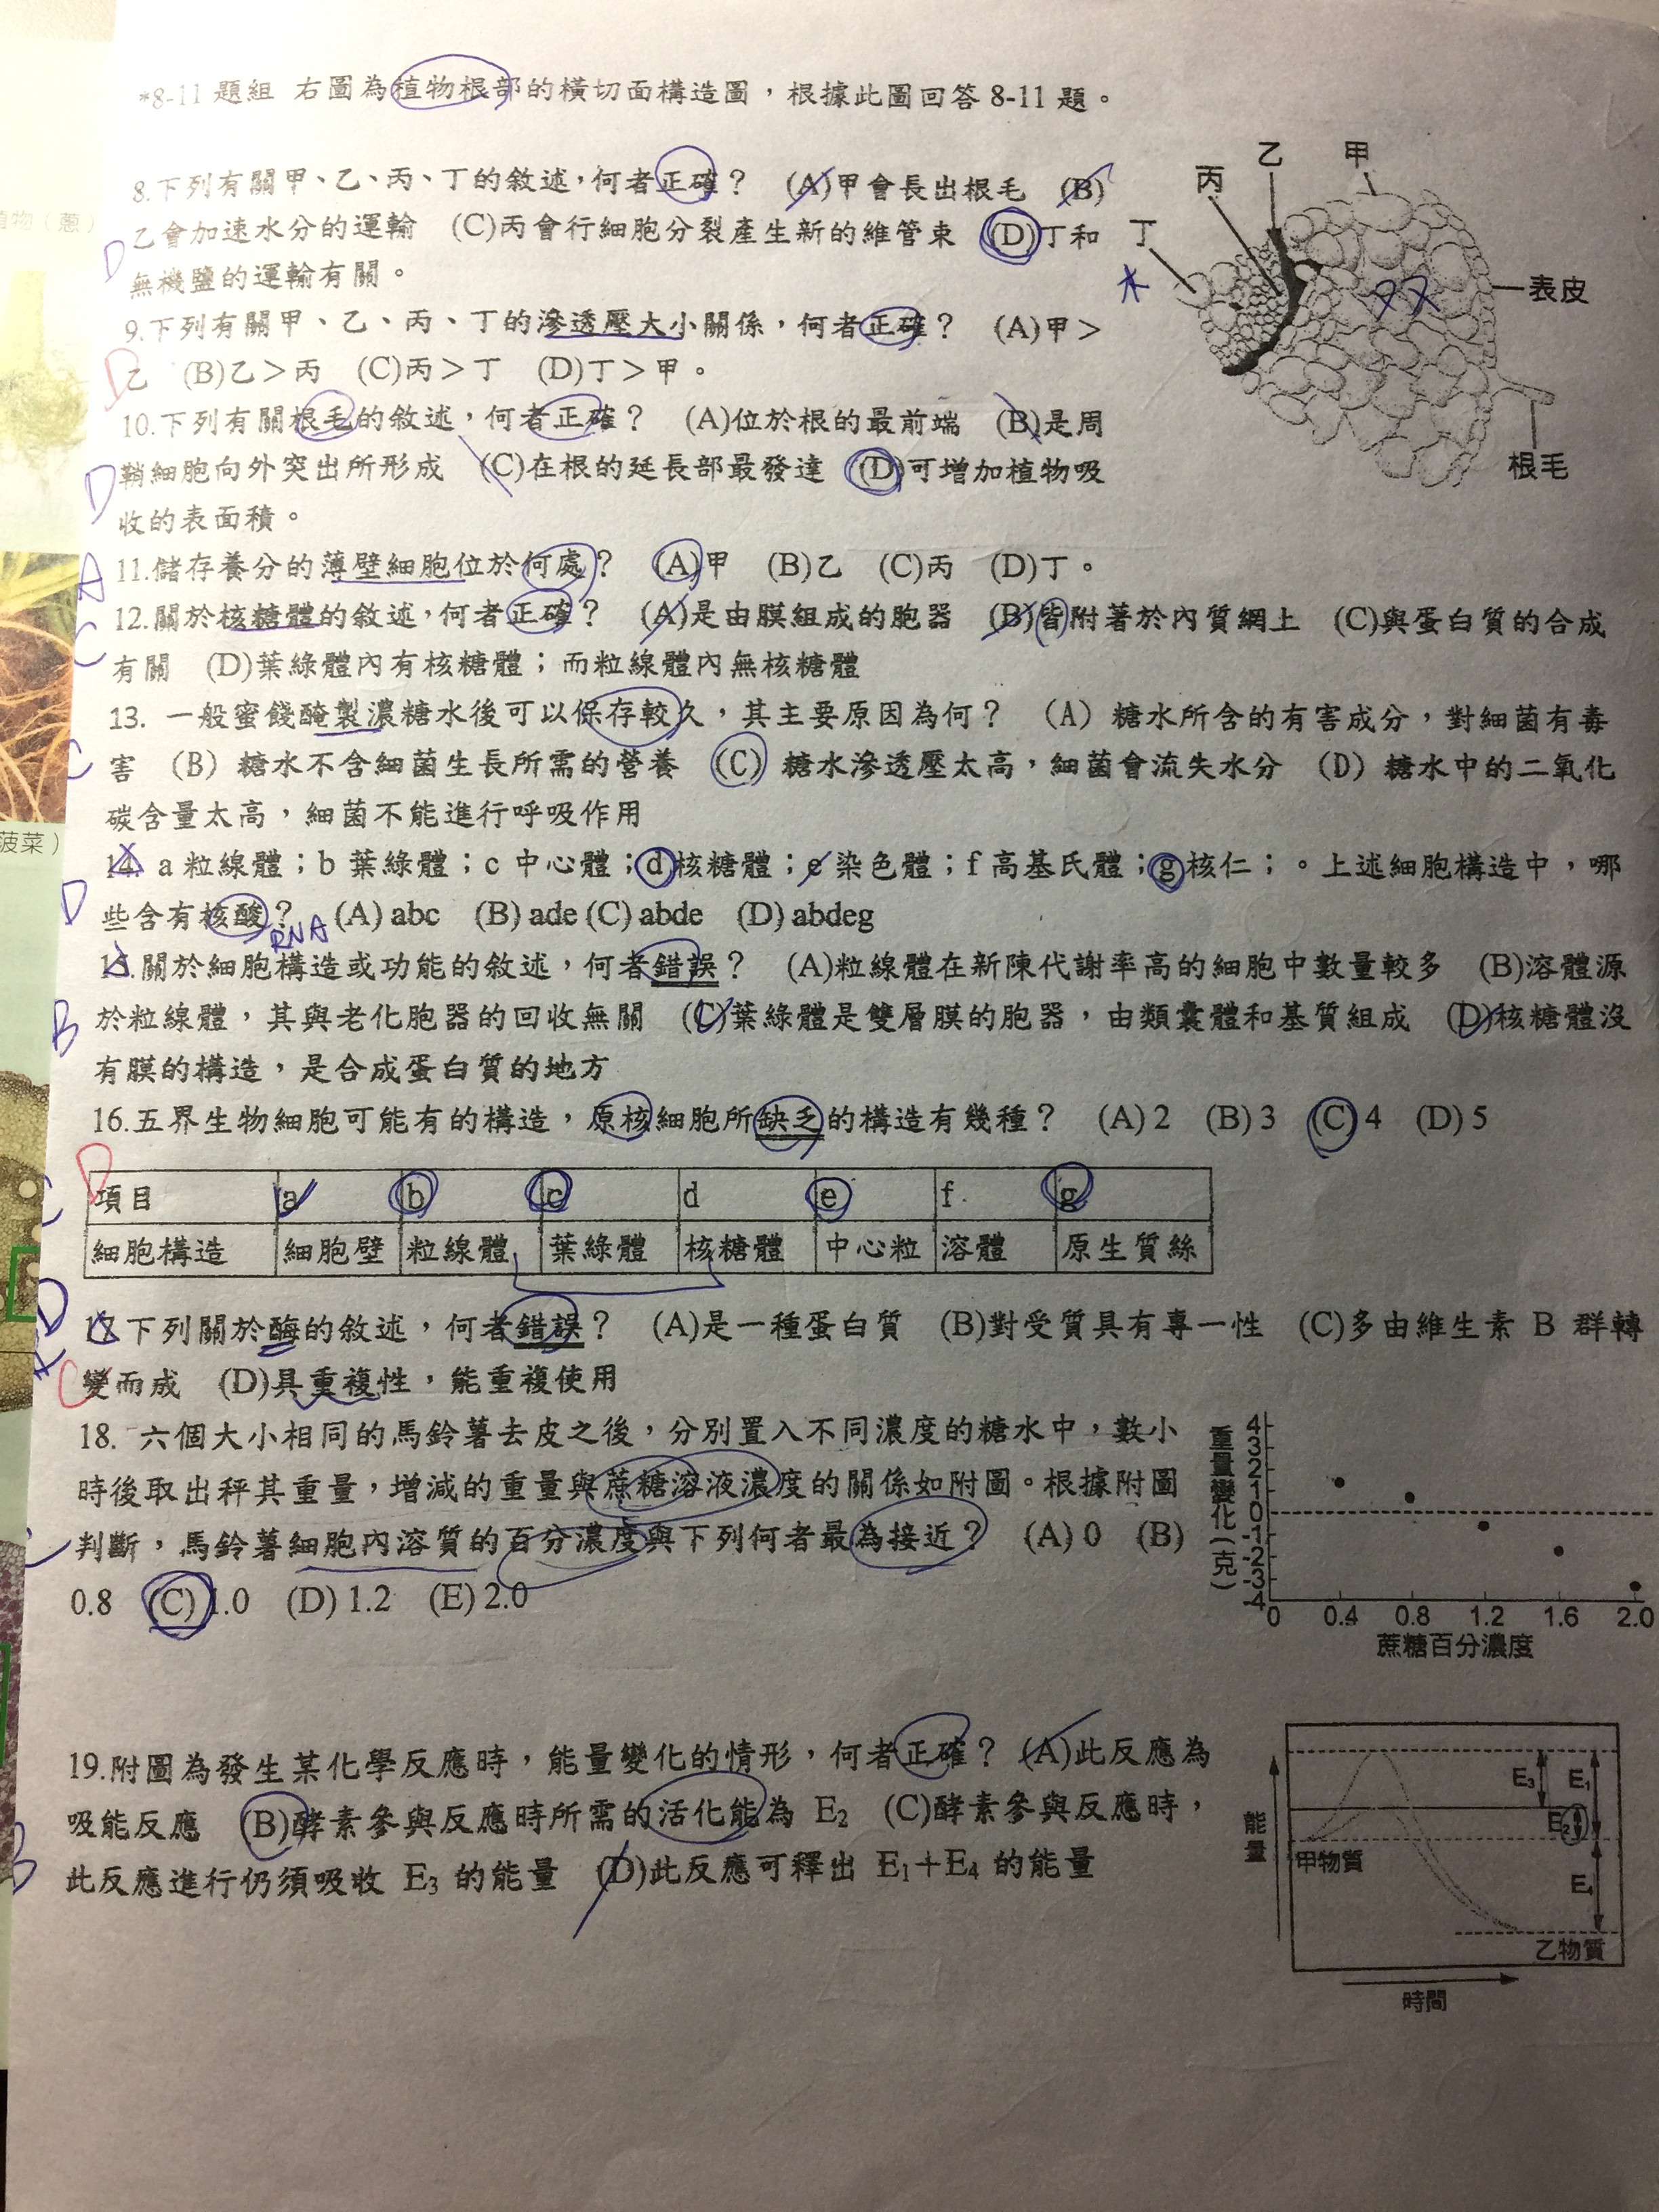 *8-11 題組 右圖為植物根部的橫切面構造圖，根據此圖回答 8-11 題。
8.下列有關甲、乙、丙、丁的敘述，何者正確？ (A)甲會長出根毛 (B)
乙會加速水分的運輸 (C)丙會行細胞分裂產生新的維管束 (D)丁和
無機鹽的運輸有關。
D
乙 甲
丙
丁
木
表皮
根毛
9.下列有關甲、乙、丙、丁的滲透壓大小關係，何者正確？ (A)甲＞
乙 (B)乙＞丙 (C)丙＞丁 (D)丁＞甲。
D
10.下列有關根毛的敘述，何者正確？ (A)位於根的最前端 (B)是周
鞘細胞向外突出所形成 (C)在根的延長部最發達 (D)可增加植物吸
收的表面積。
D
11.儲存養分的薄壁細胞位於何處？ (A)甲 (B)乙 (C)丙 (D)丁。
A
12.關於核糖體的敘述，何者正確？ (A)是由膜組成的胞器 (B)皆附著於內質網上 (C)與蛋白質的合成
有關 (D)葉綠體內有核糖體；而粒線體內無核糖體
C
13. 一般蜜餞醃製濃糖水後可以保存較久，其主要原因為何？ (A) 糖水所含的有害成分，對細菌有毒
害 (B) 糖水不含細菌生長所需的營養 (C) 糖水滲透壓太高，細菌會流失水分 (D) 糖水中的二氧化
碳含量太高，細菌不能進行呼吸作用
C
14. a 粒線體；b 葉綠體；c 中心體；d 核糖體；e 染色體；f 高基氏體；g 核仁；。上述細胞構造中，哪
些含有核酸？ (A) abc (B) ade (C) abde (D) abdeg
D
RNA
15.關於細胞構造或功能的敘述，何者錯誤？ (A)粒線體在新陳代謝率高的細胞中數量較多 (B)溶體源
於粒線體，其與老化胞器的回收無關 (C)葉綠體是雙層膜的胞器，由類囊體和基質組成 (D)核糖體沒
有膜的構造，是合成蛋白質的地方
B
16.五界生物細胞可能有的構造，原核細胞所缺乏的構造有幾種？ (A) 2 (B) 3 (C) 4 (D) 5
C
D
項目 a b c d e f g
細胞構造 細胞壁 粒線體 葉綠體 核糖體 中心粒 溶體 原生質絲
17.下列關於酶的敘述，何者錯誤？ (A)是一種蛋白質 (B)對受質具有專一性 (C)多由維生素 B 群轉
變而成 (D)具重複性，能重複使用
D
C
18. 六個大小相同的馬鈴薯去皮之後，分別置入不同濃度的糖水中，數小
時後取出秤其重量，增減的重量與蔗糖溶液濃度的關係如附圖。根據附圖
判斷，馬鈴薯細胞內溶質的百分濃度與下列何者最為接近？ (A) 0 (B)
0.8 (C) 1.0 (D) 1.2 (E) 2.0
C
重量變化(克)
4
3
2
1
0
-1
-2
-3
-4
0 0.4 0.8 1.2 1.6 2.0
蔗糖百分濃度
19.附圖為發生某化學反應時，能量變化的情形，何者正確？ (A)此反應為
吸能反應 (B)酵素參與反應時所需的活化能為 E2 (C)酵素參與反應時，
此反應進行仍須吸收 E3 的能量 (D)此反應可釋出 E1＋E4 的能量
B
能量
E3 E1
E2
甲物質
E4
乙物質
時間